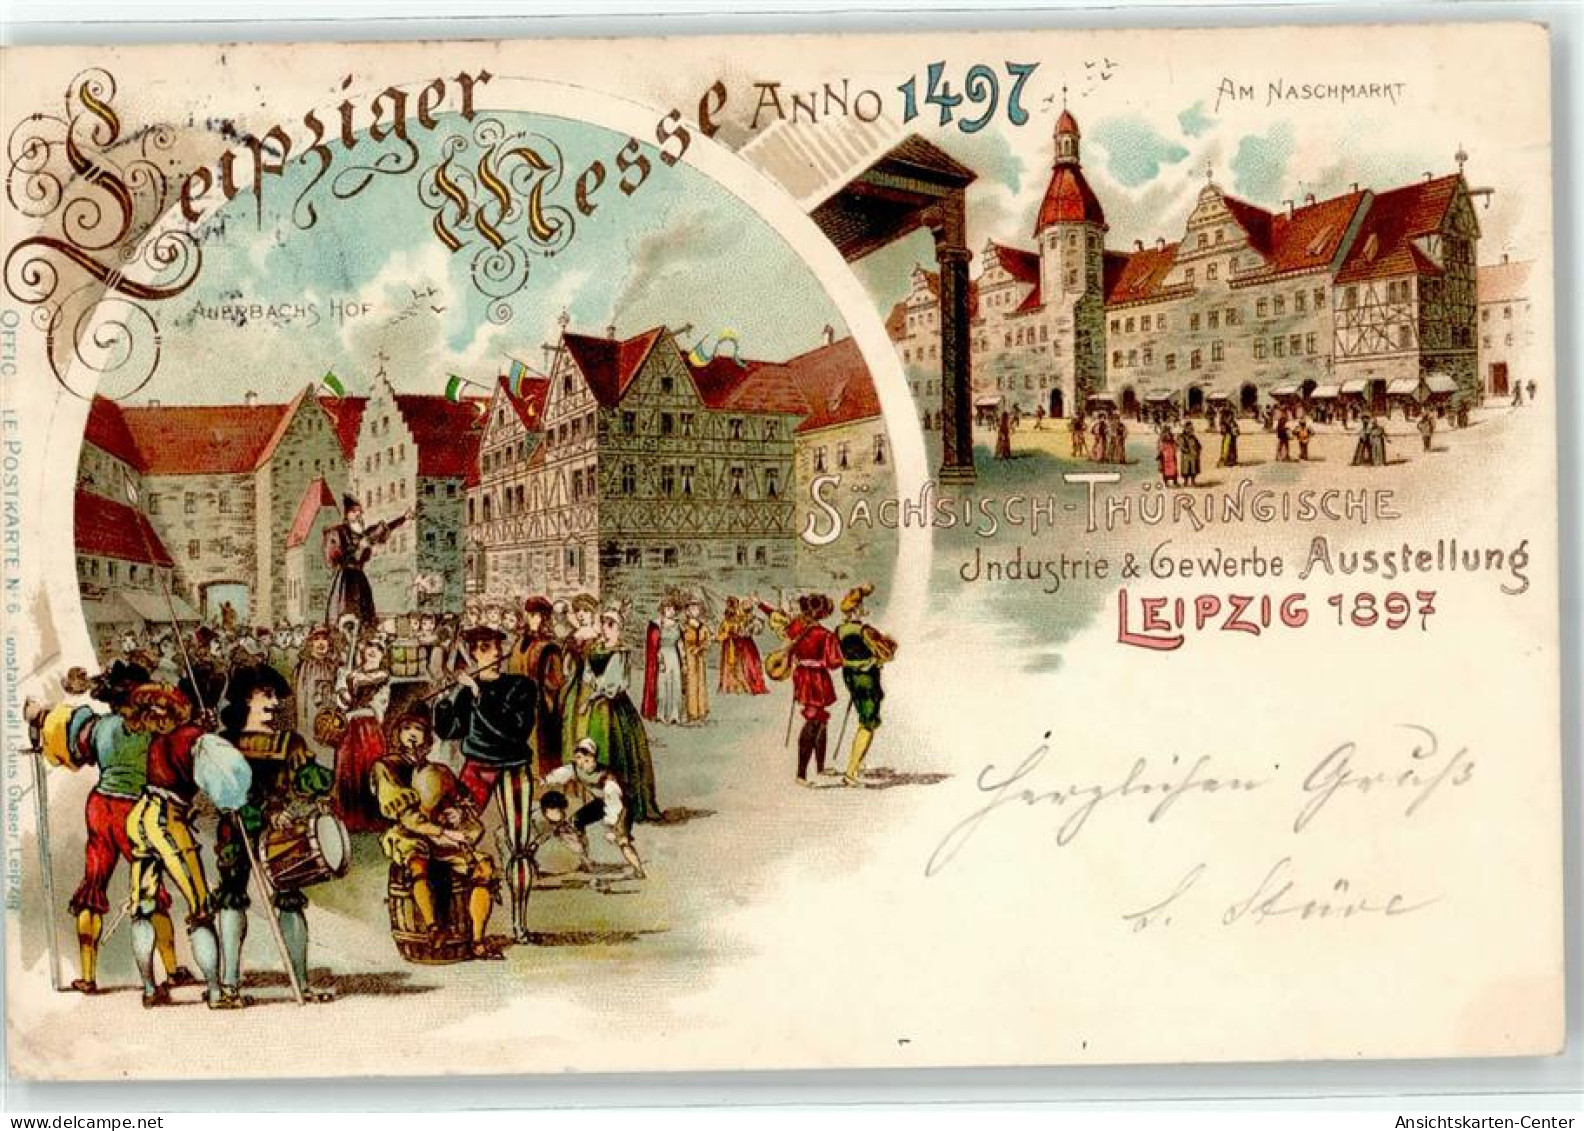 Leipziger Messe Anno 1497
Am Naschmarkt
Auerbachs Hof
Sächsisch-Thüringische
Industrie & Gewerbe Ausstellung
Leipzig 1897
Herzlichen Gruß
Offic le Postkarte No 6 unstanstalt Louis Glaser, Leipzig
Ansichtskarten-Center